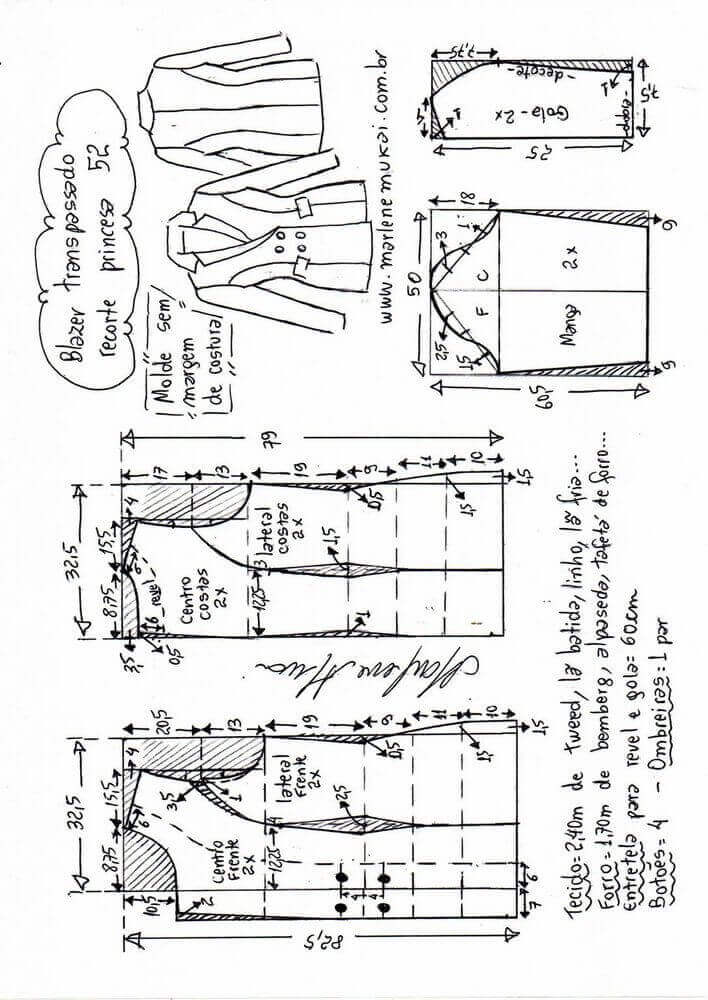 Blazer transpassado
recorte princesa 52
Molde sem
margem
de costura
www.marlenemukai.com.br
7,75
4
1
-decote-
Gola - 2x
1
dobra
7,5
25
50
18
2,5
1,5
3
1
F
C
Manga
2x
60,5
6
6
79
17
13
19
9
11
10
32,5
8,75
15,5
4
6
16
revel
3,5
0,5
centro
costas
2x
lateral
costas
2x
3
12,25
1,5
1
0,5
1,5
1,5
Marlene Mukai
82,5
20,5
13
19
9
11
10
32,5
8,75
15,5
4
6
10,5
2
3,5
1
Centro
Frente
2x
lateral
Frente
2x
4
12,25
2,5
0,5
1,5
1,5
4
4
4
6
7
Tecido=2,40m de tweed, lã batida, linho, lã fria...
Forro=1,70m de bemberg, alpaseda, tafetá de forro...
Entretela para revel e gola= 60cm
Botões= 4 - Ombreiras= 1 par